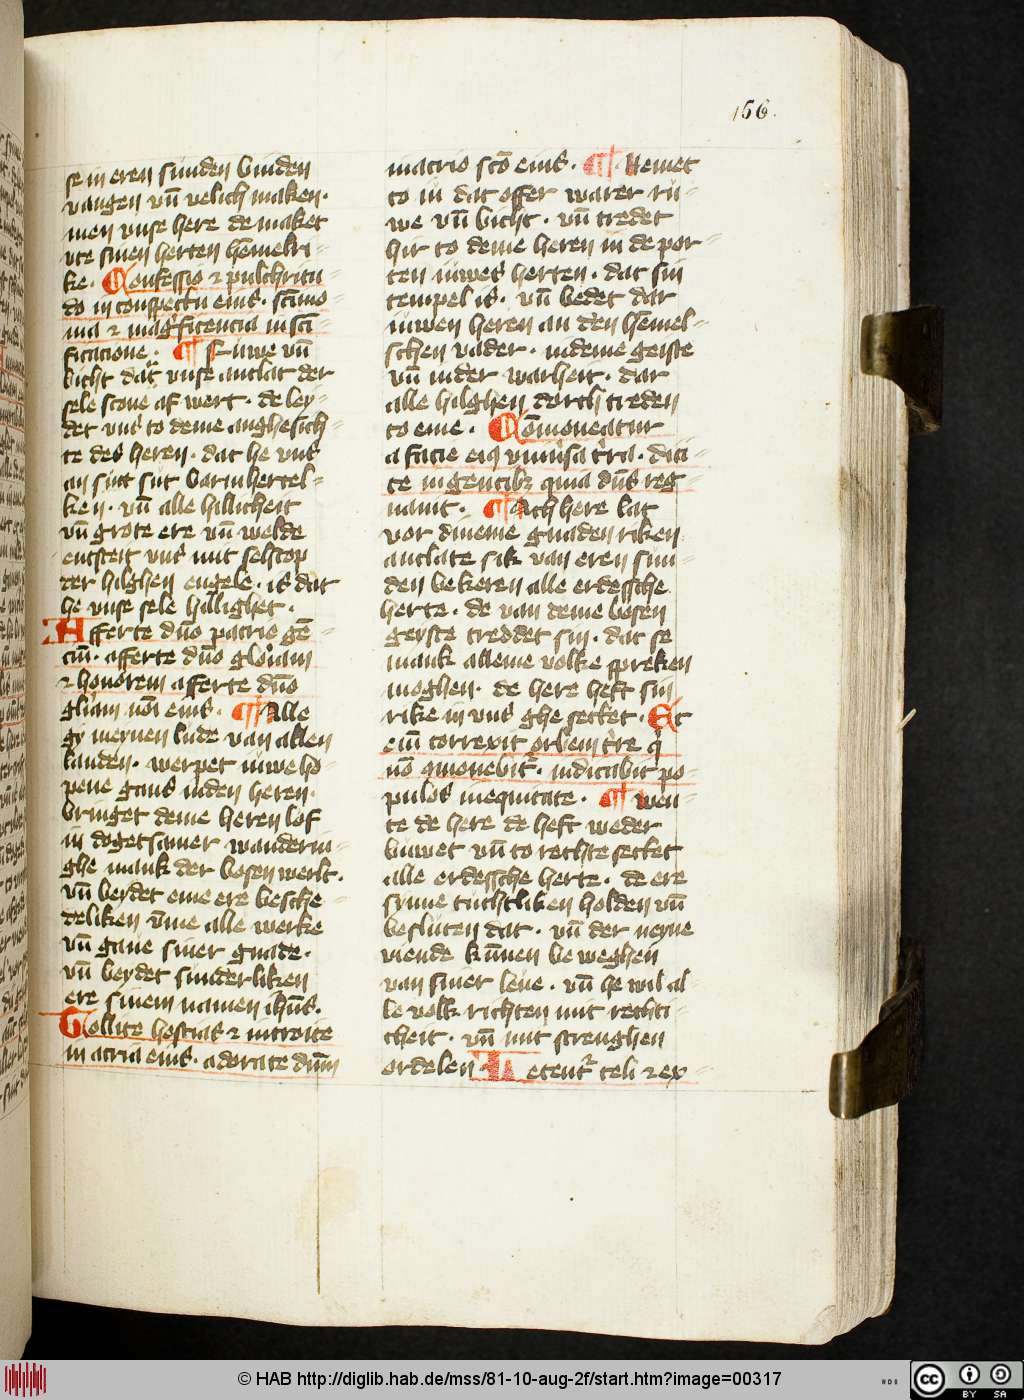 156.
se in eren sunden vinden
vangen vn̄ velich maken.
men vnse here de maket
vte sinen herten hēmelri-
ke. Confessio ⁊ pulchritu
do in conspectu eius. scīmo
nia ⁊ magificencia in scī-
ficacione. ¶ Rüwe vn̄
bicht dar vnse antlat der
sele scone af wert. de ley-
det vns to deme anghesich-
te des heren. dat he vns
an sint süt barmhertel-
ken. vn̄ alle hillicheit
vn̄ grote ere vn̄ welde
entfeit vns mit selscop
der hilghen engele. is dat
he vnse sele hillighet.
Afferte dn̄o patrie gē-
ciū. afferte dn̄o gloriam
⁊ honorem afferte dn̄o
gliam noī eius. ¶ Alle
gy meynen lude van allen
landen. werpet iuwe ho-
pene gans inden heren.
bringet deme heren lof
in dogetsamer wanderin-
ghe mank der bosen werlt.
vn̄ beydet eme ere besche-
deliken vm̄e alle werke
vn̄ gaue siner gnade.
vn̄ beydet sunderliken
ere sinem namen ihūs.
Tollite hostias ⁊ introite
in atria eius. adorate dn̄m
in atrio scō eius. ¶ Nemet
to iü dat offer warer rü-
we vn̄ bicht. vn̄ tredet
hir to deme heren in de por-
ten iuwes herten. dat sin
tempel is. vn̄ bedet dar
iuwen heren an den hēmel-
schen vader. in deme geiste
vn̄ in der warheit. dar
alle hilghen dorch treden
to eme. Cōmoueatur
a facie eiꝯ vniuersa tra. dici-
te in gentibꝫ quia dn̄s reg-
nauit. ¶ Ach here lat
vor dineme gnaden riken
antlate sik van eren sun-
den bekeren alle erdessche
herte. de van deme bosen
geyste treddet sin. dat se
mank alleme volke spreken
moghen. de here heft sin
rike in vns ghe settet. Et
eiū correxit orbem tre q̄
nō ꝯmouebit͛. iudicabit po-
pulos in equitate. ¶ Wen-
te de here de heft weder
buwet vn̄ to rechte settet
alle erdessche herte. de ere
synne tuchtliken holden vn̄
besluten dat. vn̄ der neyne
viende kūnen be weghen
van siner leue. vn̄ he wil al-
le volk richten mit rechti-
cheit. vn̄ mit strenghen
ordelen. Letent͛ celi ⁊ ex-
© HAB http://diglib.hab.de/mss/81-10-aug-2f/start.htm?image=00317
CC BY SA